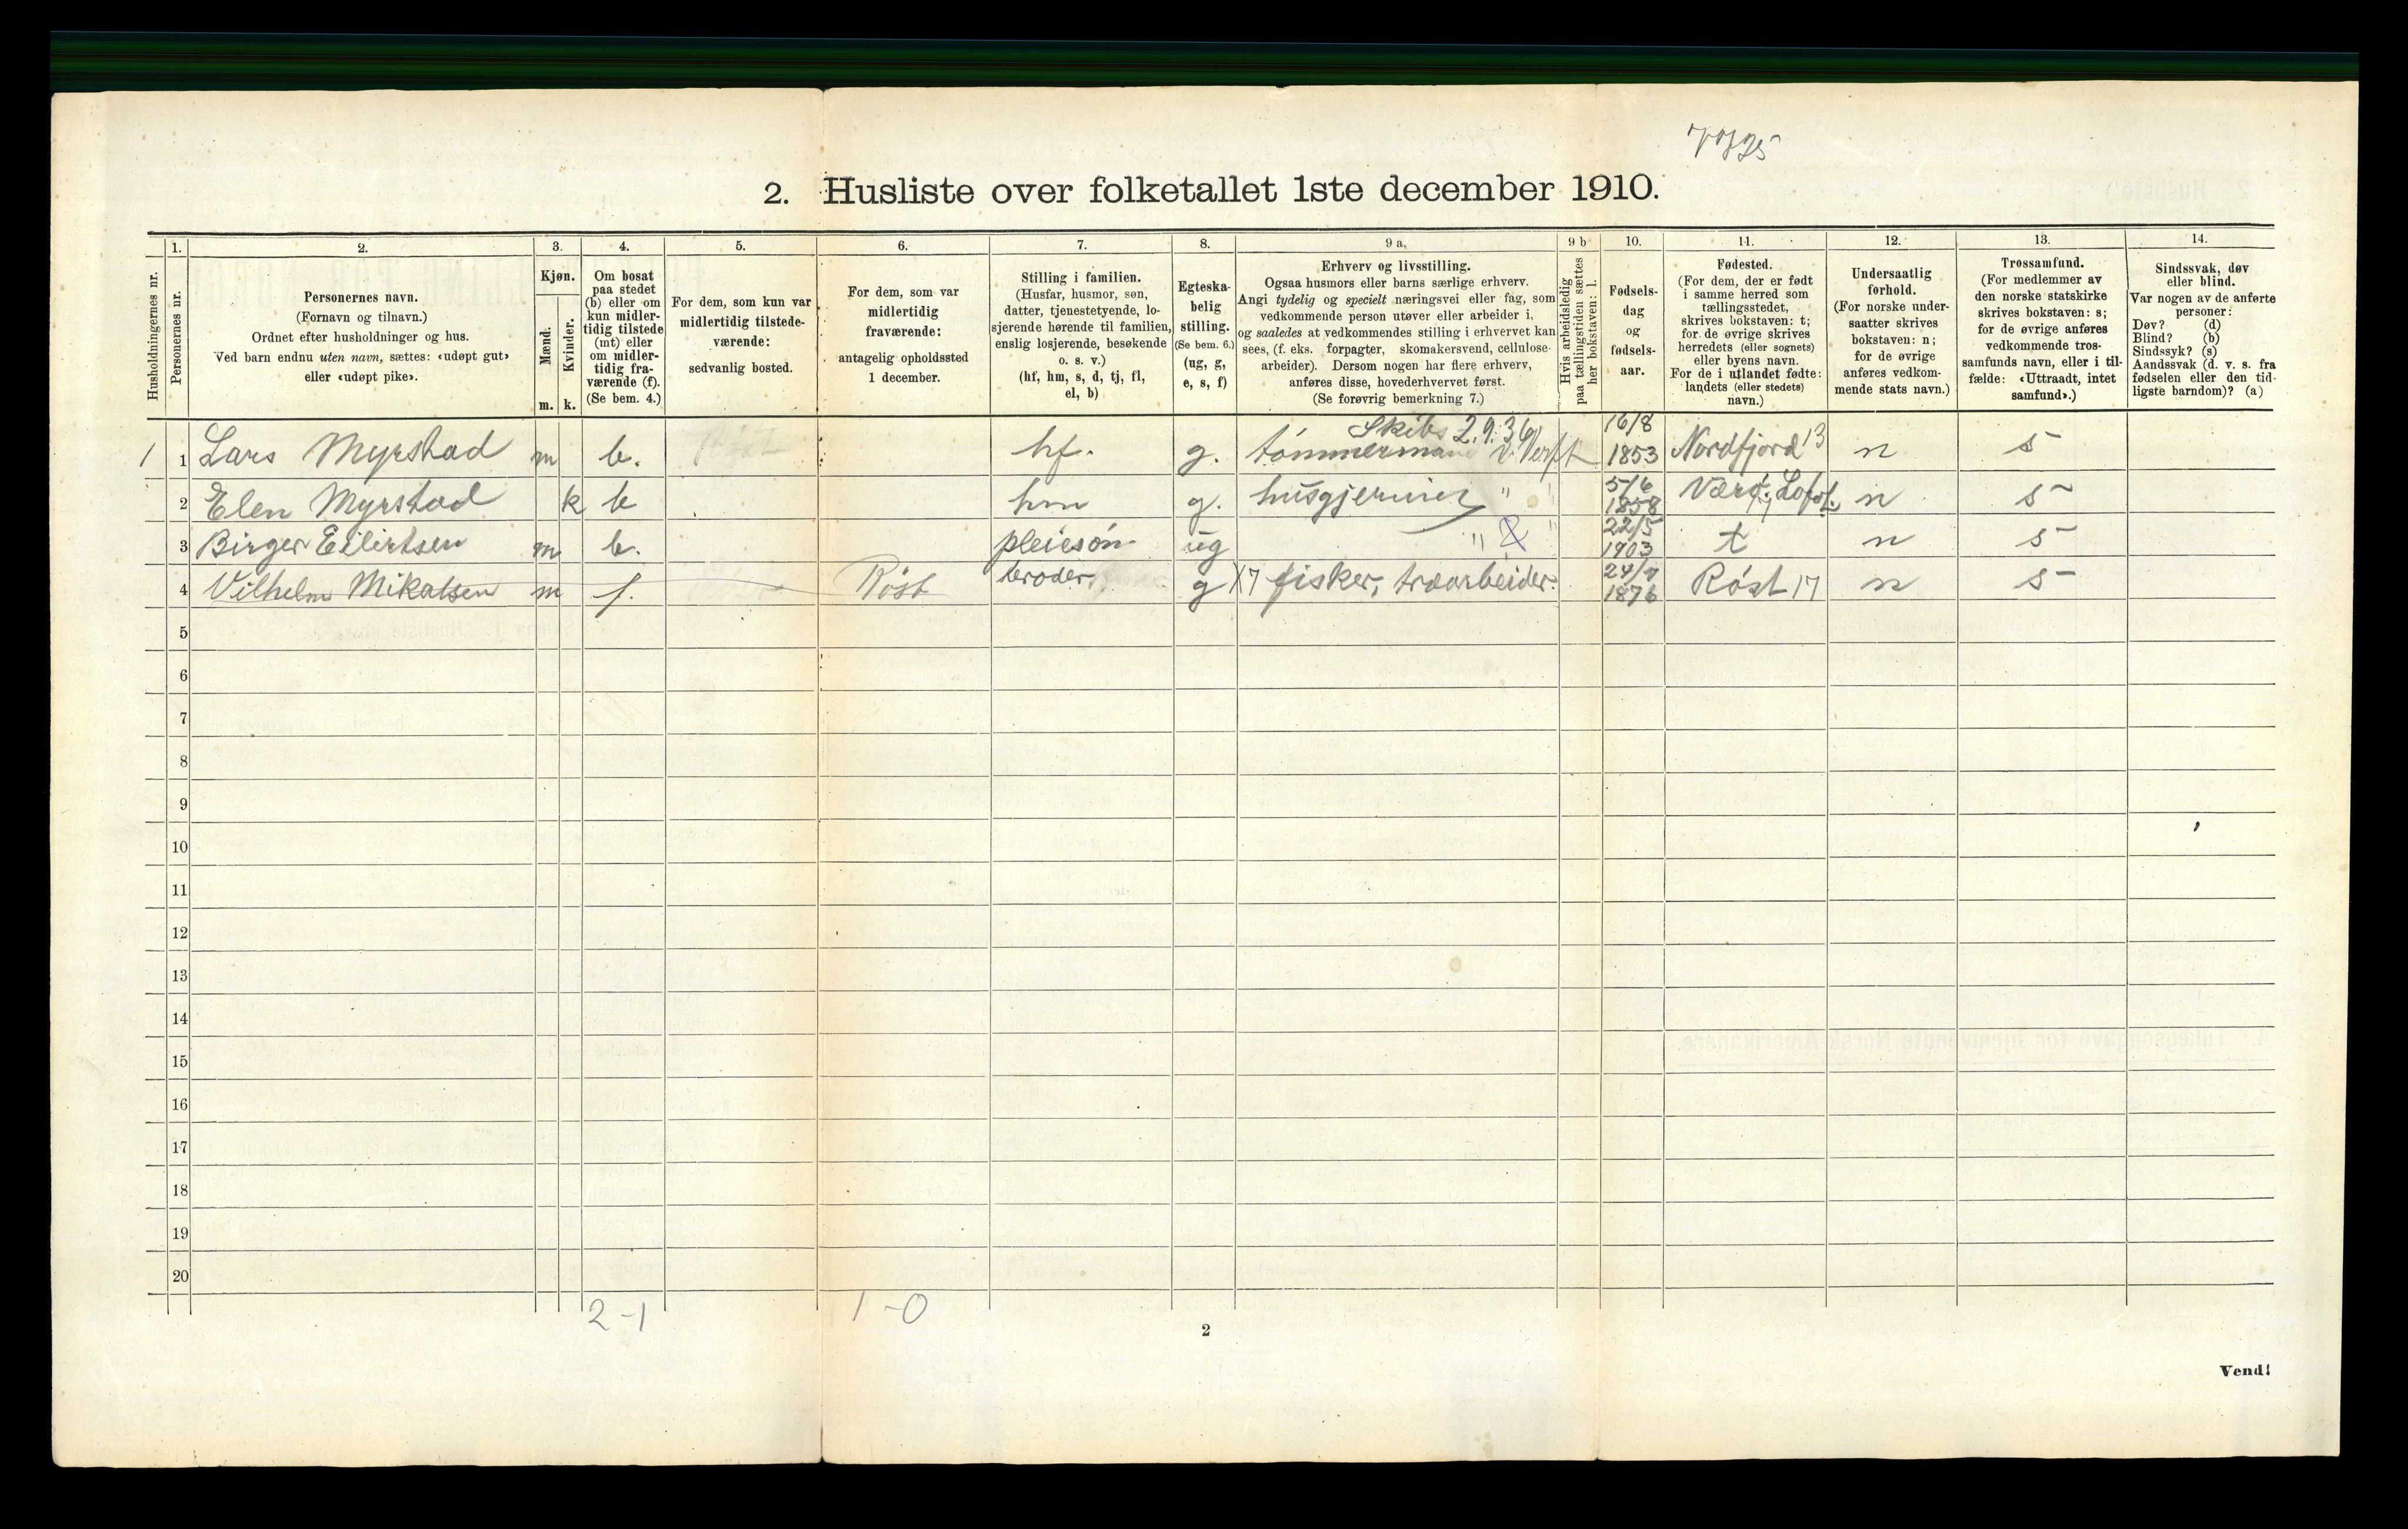 2. Husliste over folketallet 1ste december 1910.
Husholdningernes nr.
1.
Personernes nr.
2.
Personernes navn.
(Fornavn og tilnavn.)
Ordnet efter husholdninger og hus.
Ved barn endnu uten navn, sættes: «udøpt gut»
eller «udøpt pike».
3.
Kjøn.
Mænd.
Kvinder.
m. k.
4.
Om bosat
paa stedet
(b) eller om
kun midler-
tidig tilstede
(mt) eller
om midler-
tidig fra-
værende (f).
(Se bem. 4.)
5.
For dem, som kun var
midlertidig tilstede-
værende:
sedvanlig bosted.
6.
For dem, som var
midlertidig
fraværende:
antagelig opholdssted
1 december.
7.
Stilling i familien.
(Husfar, husmor, søn,
datter, tjenestetyende, lo-
sjerende hørende til familien,
enslig losjerende, besøkende
o. s. v.)
(hf, hm, s, d, tj, fl,
el, b)
8.
Egteska-
belig
stilling.
(Se bem. 6.)
(ug, g,
e, s, f)
9 a.
Erhverv og livsstilling.
Ogsaa husmors eller barns særlige erhverv.
Angi tydelig og specielt næringsvei eller fag, som
vedkommende person utøver eller arbeider i,
og saaledes at vedkommendes stilling i erhvervet kan
sees, (f. eks. forpagter, skomakersvend, cellulose-
arbeider). Dersom nogen har flere erhverv,
anføres disse, hovederhvervet først.
(Se forøvrig bemerkning 7.)
9 b
Hvis arbeidsledig
paa tællingstiden sættes
her bokstaven: l.
10.
Fødsels-
dag
og
fødsels-
aar.
11.
Fødested.
(For dem, der er født
i samme herred som
tællingsstedet,
skrives bokstaven: t;
for de øvrige skrives
herredets (eller sognets)
eller byens navn.
For de i utlandet fødte:
landets (eller stedets)
navn.)
12.
Undersaatlig
forhold.
(For norske under-
saatter skrives
bokstaven: n;
for de øvrige
anføres vedkom-
mende stats navn.)
13.
Trossamfund.
(For medlemmer av
den norske statskirke
skrives bokstaven: s;
for de øvrige anføres
vedkommende tros-
samfunds navn, eller i til-
fælde: «Uttraadt, intet
samfund».)
14.
Sindssvak, døv
eller blind.
Var nogen av de anførte
personer:
Døv? (d)
Blind? (b)
Sindssyk? (s)
Aandssvak (d. v. s. fra
fødselen eller den tid-
ligste barndom)? (a)
Skibs 2.9.36 16/8
1 1 Lars Myrstad m b. hf. g. tømmermand v. Verft 1853 Nordfjord 13 n s
2 Elen Myrstad k b hm g. husgjerning " " 5/6 1858 Værø, Lofot. n s
3 Birger Eilertsen m b. pleiesøn ug " " 22/5 1903 t n s
4 Vilhelm Mikalsen m f. Røst broder, g X7 fisker, træarbeider. 1876 Røst 17 n s
5
6
7
8
9
10
11
12
13
14
15
16
17
18
19
20
2-1 1-0
2
Vend!